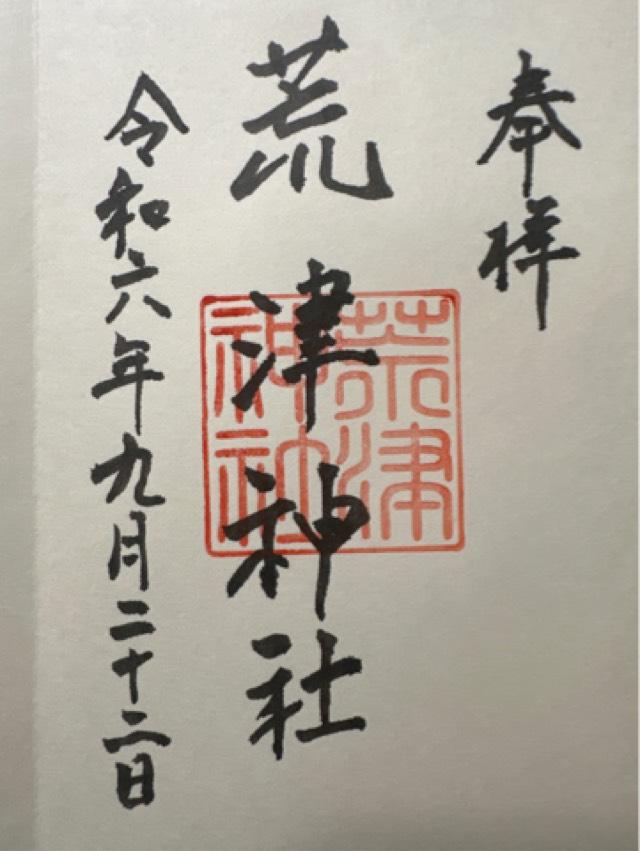 奉拝
荒津神社
令和六年九月二十二日
荒津
神社